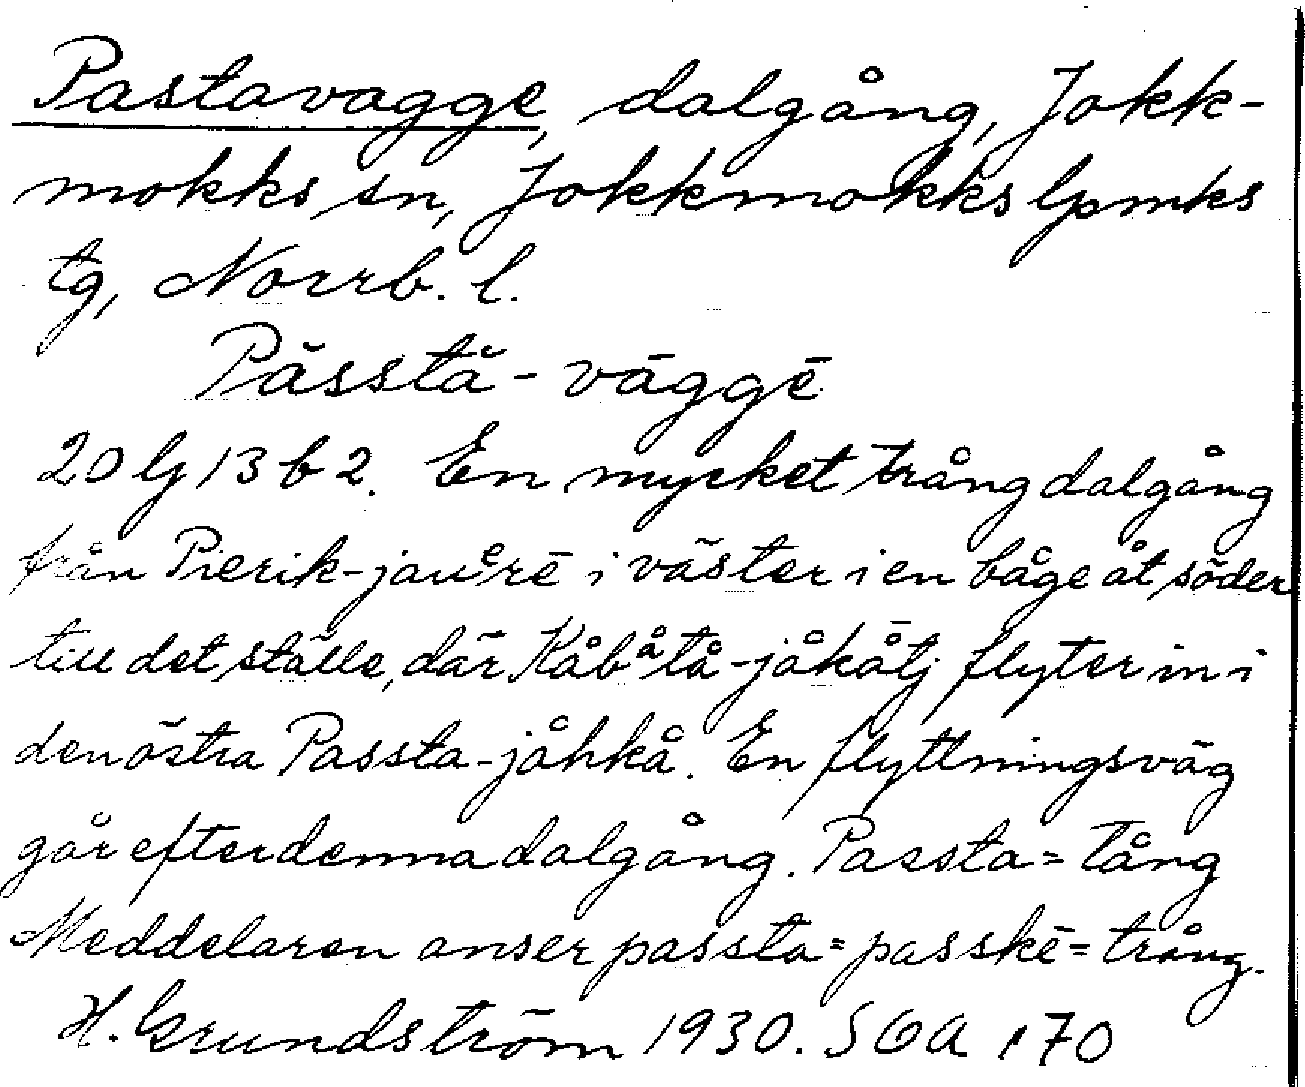 Pastavagge, dalgång, Jokk-
mokks sn, Jokkmokks lpmks
tg, Norrb. l.
Påsstå-vāggē
20 G 13 b 2. En mycket trång dalgång
från Pierik-jauᵉrē i väster i en båge åt söder
till det ställe, där Kåbᵃ̊tå-jåkåtj flyter in i
den östra Passta-jåhkå. En flyttningsväg
går efter denna dalgång. Passta = Tång
Meddelaren anser passta = passkē = trång.
H. Grundström 1930. SOA 170